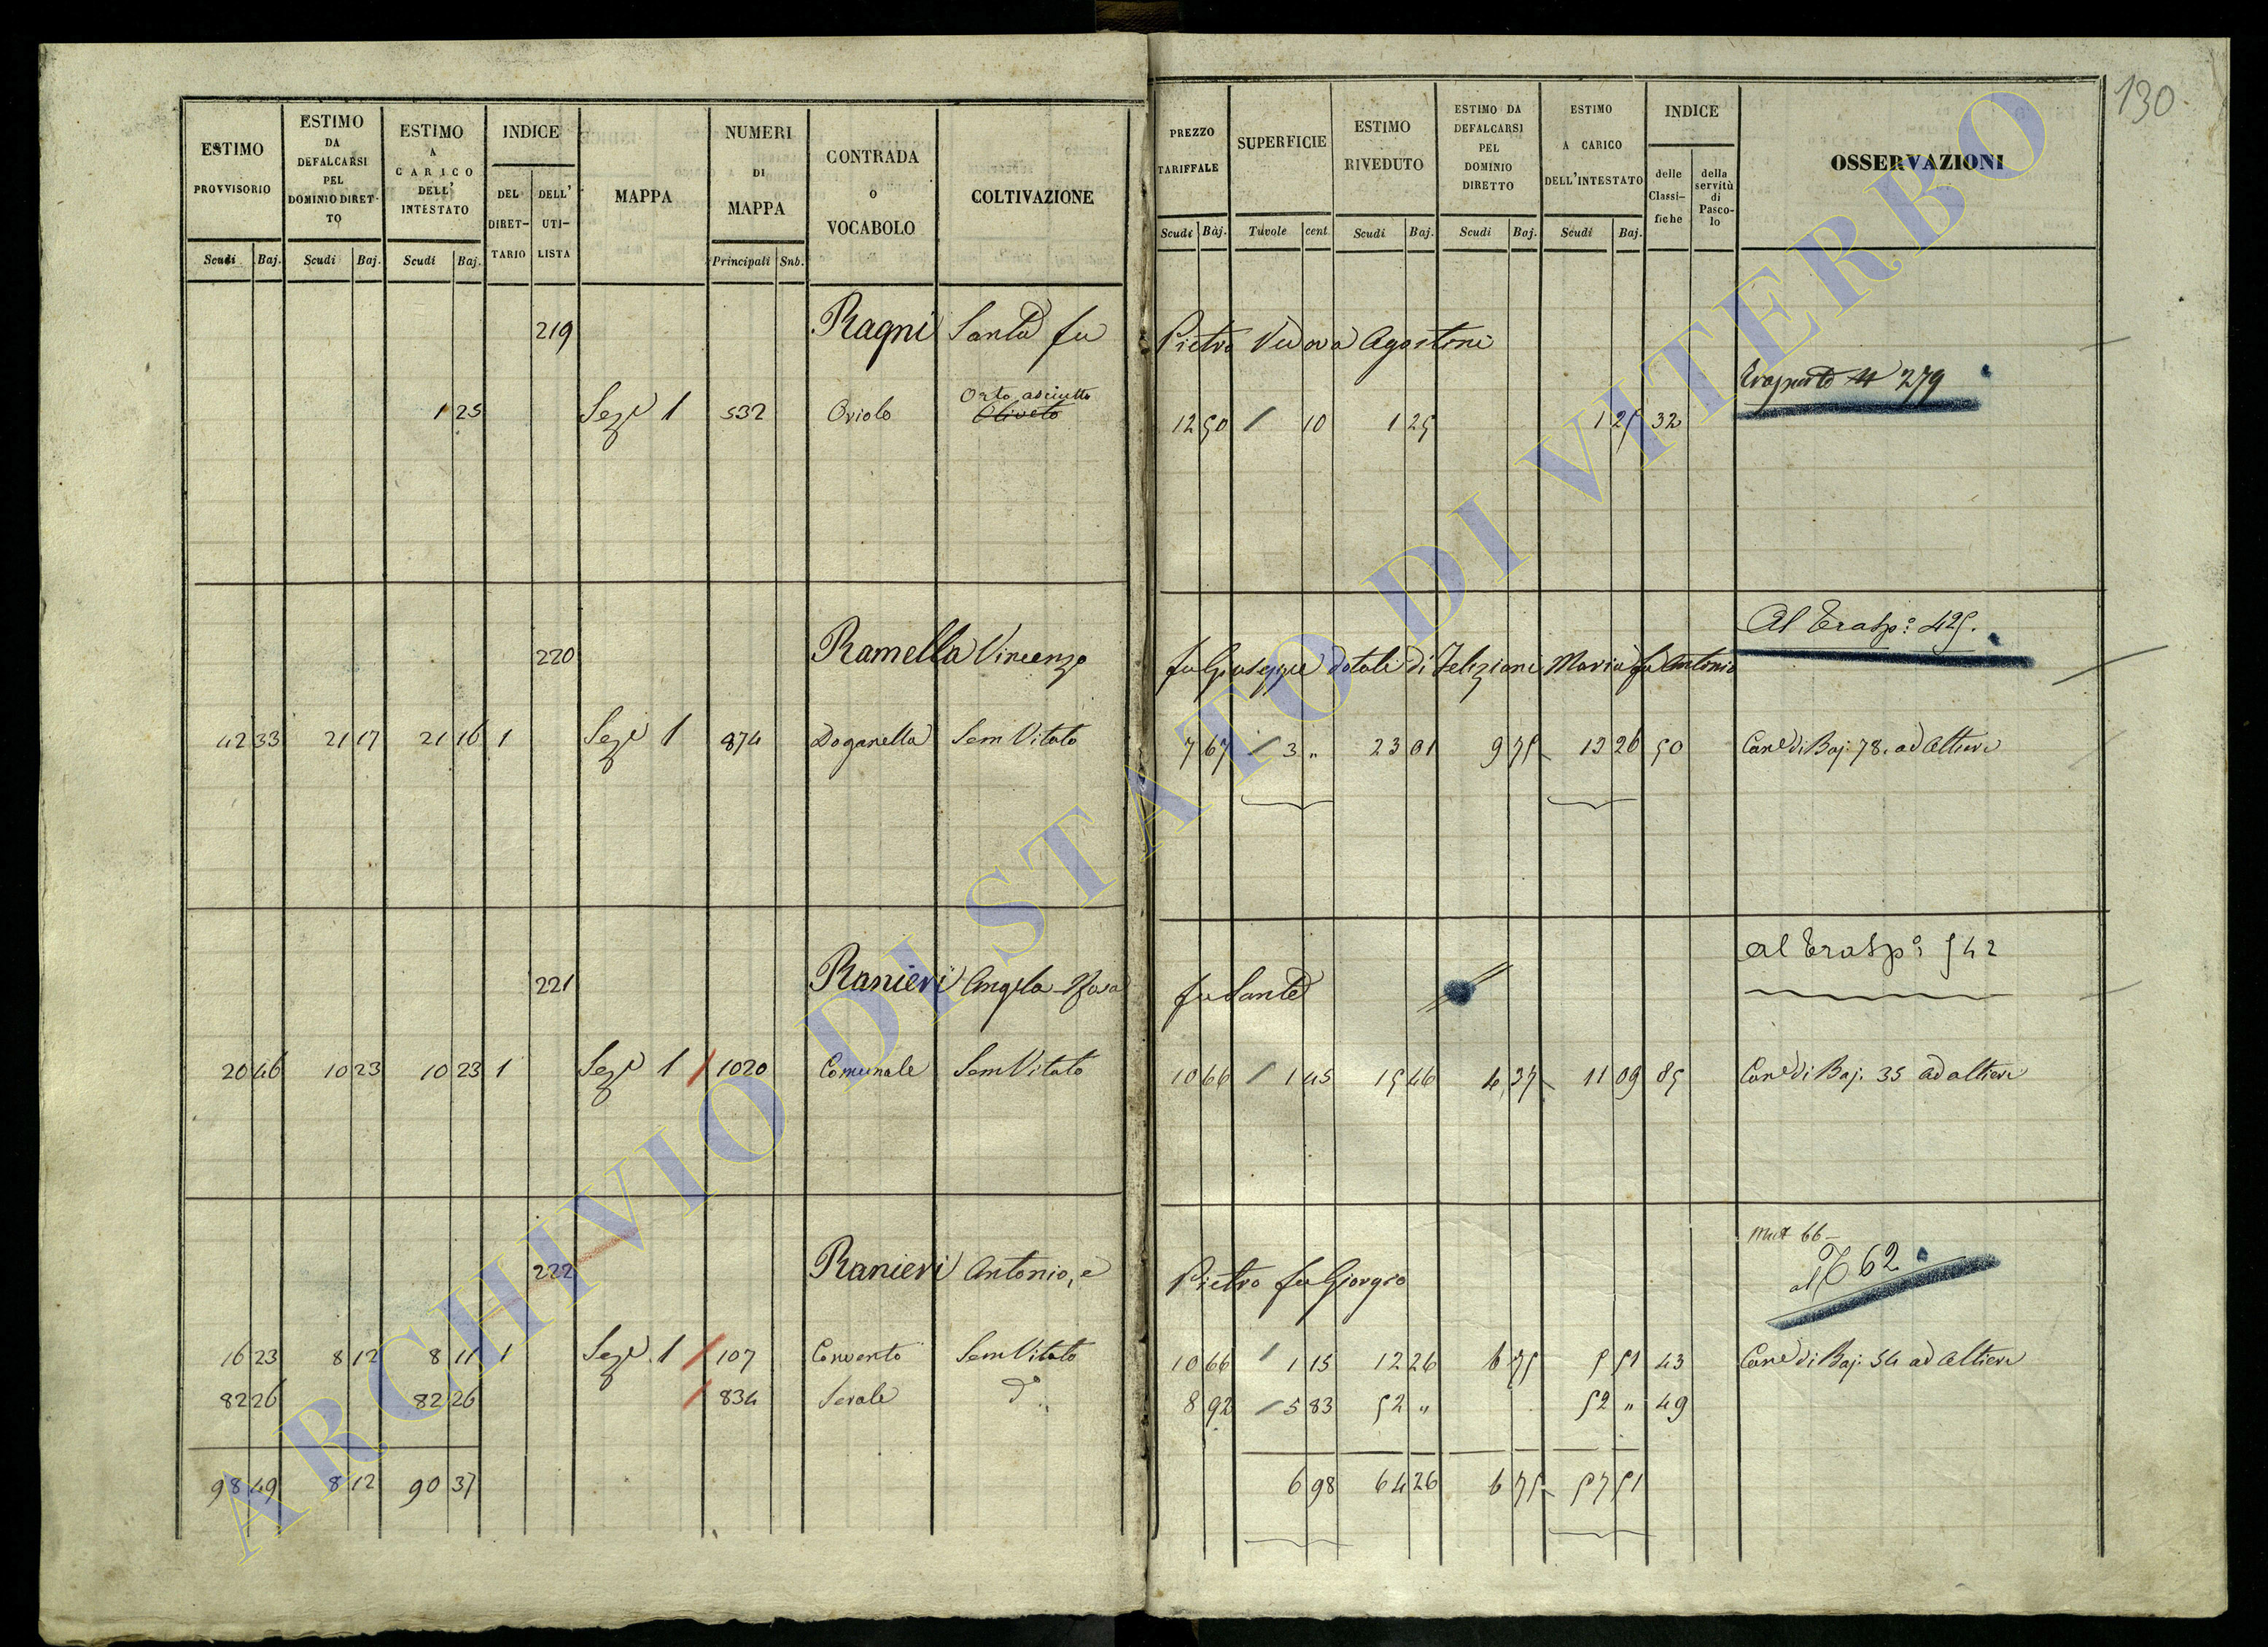 130
ESTIMO PROVVISORIO
ESTIMO DA DEFALCARSI PEL DOMINIO DIRETTO
ESTIMO A CARICO DELL' INTESTATO
INDICE
DEL DIRETTARIO
DELL' UTILISTA
MAPPA
NUMERI DI MAPPA
CONTRADA o VOCABOLO
COLTIVAZIONE
PREZZO TARIFFALE
SUPERFICIE
ESTIMO RIVEDUTO
ESTIMO DA DEFALCARSI PEL DOMINIO DIRETTO
ESTIMO A CARICO DELL'INTESTATO
INDICE
delle Classifiche
della servitù di Pascolo
OSSERVAZIONI
Scudi Baj. Scudi Baj. Scudi Baj. Principali Snb. Scudi Baj. Tavole cent. Scudi Baj. Scudi Baj. Scudi Baj.
219 Ragni Santa fu Pietro Vedova Agostini
Trasporto 279
Orto asciutto
1 25 Seze 1 532 Oriolo Oliveto 12 50 10 1 25 1 25 32
Al Traspo: 425.
220 Ramella Vincenzo fu Giuseppe dotali di Felizioni Maria fu Antonio
42 33 21 17 21 16 1 Seze 1 874 Doganella Sem Vitato 7 67 3 " 23 01 9 75 13 26 50 Cane di Baj: 78. ad Altieri
al Traspo: 542
221 Ranieri Angela Rosa fu Sante
20 46 10 23 10 23 1 Seze 1 1020 Comunale Sem Vitato 10 66 1 45 15 46 4 37 11 09 85 Cane di Baj. 35 ad Altieri
Mut 66
al T 62
222 Ranieri Antonio, e Pietro fu Giorgio
16 23 8 12 8 11 1 Seze. 1 107 Convento Sem Vitato 10 66 1 15 12 26 6 75 5 51 43 Cane di Baj. 54 ad Altieri
82 26 82 26 834 Serale do 8 92 5 83 52 " 52 " 49
98 49 8 12 90 37 6 98 64 26 6 75 57 51
ARCHIVIO DI STATO DI VITERBO